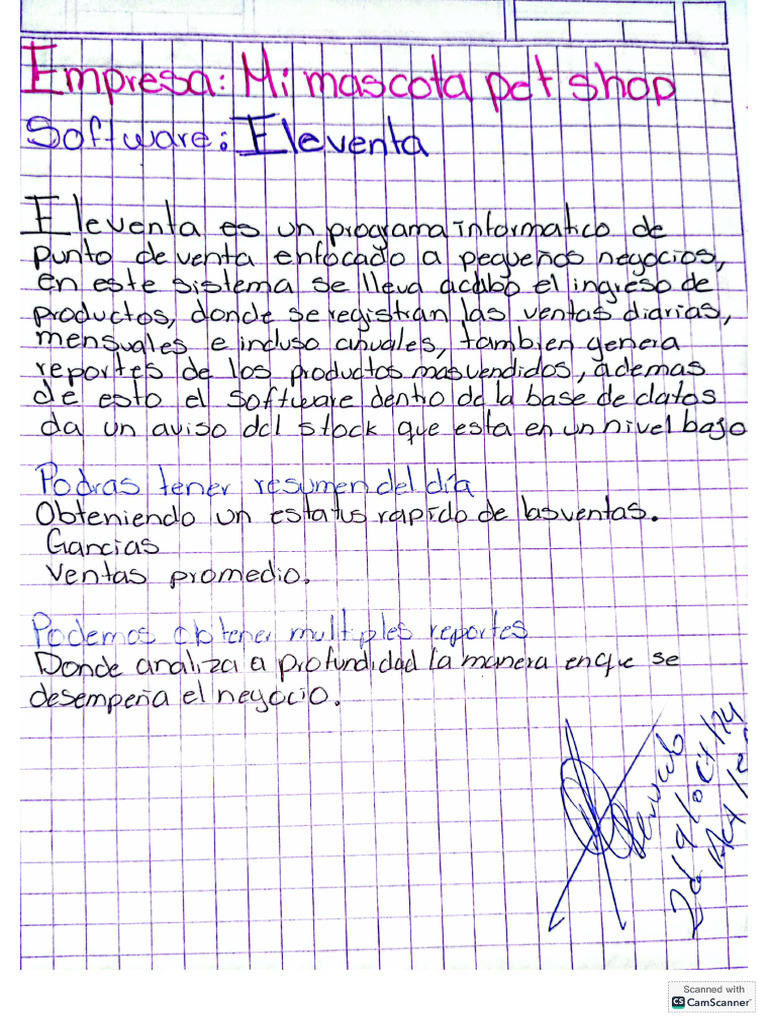 Empresa: Mi mascota pet shop
Software: Eleventa
Eleventa es un programa informatico de
punto de venta enfocado a pequeños negocios,
en este sistema se lleva acabo el ingreso de
productos, donde se registran las ventas diarias,
mensuales e incluso anuales, tambien genera
reportes de los productos mas vendidos, ademas
de esto el software dentro de la base de datos
da un aviso del stock que esta en un nivel bajo
Podras tener resumen del día
Obteniendo un estatus rapido de las ventas.
Gancias
Ventas promedio.
Podemos obtener multiples reportes
Donde analiza a profundidad la manera en que se
desempeña el negocio.
Scanned with
CS CamScanner